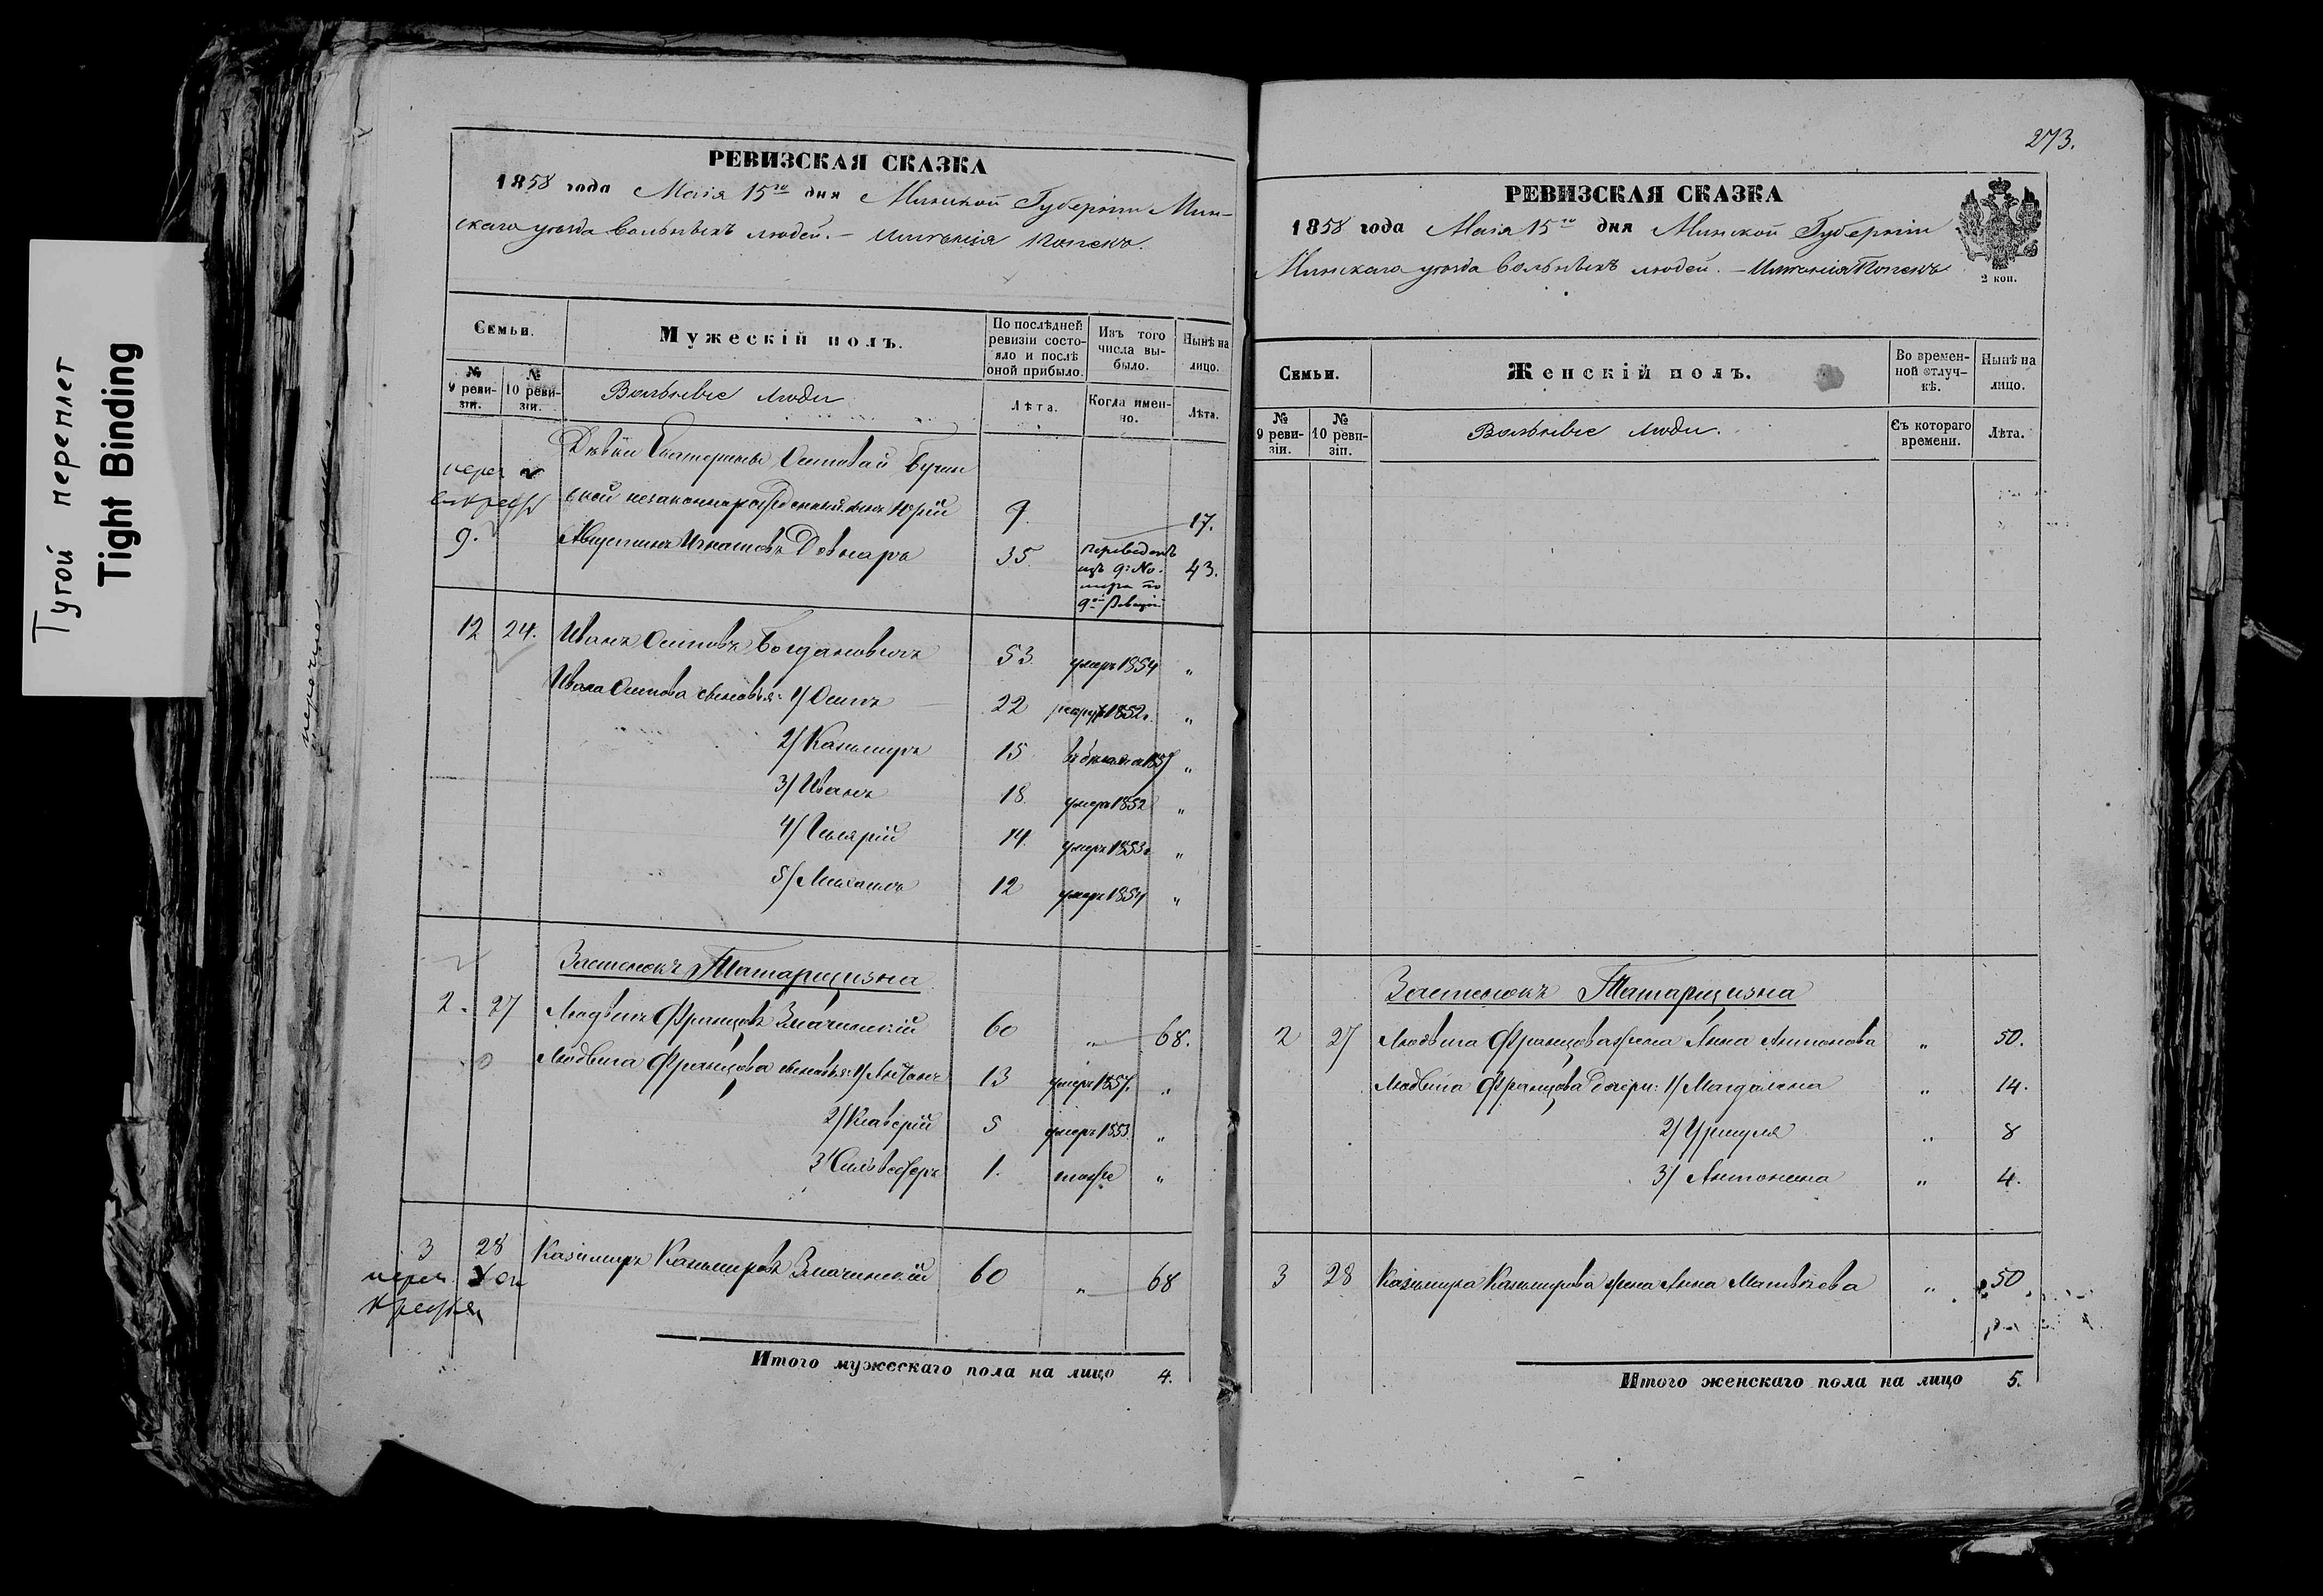 Тугой переплет
Tight Binding
РЕВИЗСКАЯ СКАЗКА
1858 года Маія 15го дня Минской Губерніи Мин-
скаго уѣзда вольныхъ людей. — Имѣнія
Семьи.
Мужескій полъ.
По послѣдней ревизіи состо-яло и послѣ оной прибыло.
Изъ того числа вы-было.
Нынѣ на лицо.
№ 9 реви-зіи.
№ 10 реви-зіи.
Вольные люди
Лѣта.
Когда имен-но.
Лѣта.
Дѣвки Екатерины Осиповой
незаконнорожденный сынъ Юрій 9. 17.
9. Августинъ Игнатовъ Довнаръ 35. переведенъ изъ 9го Но-мера по 9ой Ревизіи 43.
12 24. Иванъ Осиповъ Богдановичъ 53. умеръ 1854 „
Ивана Осипова сыновья: 1/ Осипъ 22 рекрут 1852г. „
2/ Казимиръ 15 1857 „
3/ Иванъ 18. умеръ 1852 „
4/ Гилярій 14. умеръ 1853г. „
5/ Михаилъ 12 умеръ 1854 „
Застенокъ Татарщизна
2. 27 Людвигъ Францовъ 60 „ 68.
Людвига Францова сыновья: 1/ Антонъ 13 умеръ 1857. „
2/ Ксаверій 5 умеръ 1853. „
3/ Сильвестръ 1. тоже „
3 28 Казимиръ Казимировъ 60 „ 68
Итого мужескаго пола на лицо 4.
273.
РЕВИЗСКАЯ СКАЗКА
2 коп.
1858 года Маія 15го дня Минской Губерніи
Минскаго уѣзда вольныхъ людей. — Имѣнія
Семьи.
Женскій полъ.
Во времен-ной отлуч-кѣ.
Нынѣ на лицо.
№ 9 реви-зіи.
№ 10 реви-зіи.
Вольные люди.
Съ котораго времени.
Лѣта.
Застенокъ Татарщизна
2 27 Людвига Францова жена Анна Антонова „ 50.
Людвига Францова дочери: 1/ Магдалена „ 14.
2/ Уршуля „ 8
3/ Антонина „ 4.
3 28 Казимира Казимирова жена Анна Матвѣева „ 50
Итого женскаго пола на лицо 5.